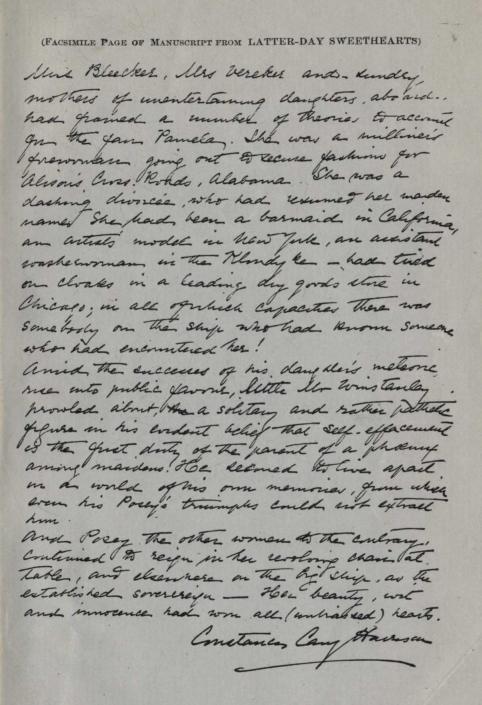 (FACSIMILE PAGE OF MANUSCRIPT FROM LATTER-DAY SWEETHEARTS)
Miss Bleecker, Mrs Vereker and sundry
mothers of unentertaining daughters, aboard..
had framed a number of theories to account
for the fair Pamela. She was a milliner's
forewoman going out to secure fashions for
Alison's Cross Roads, Alabama. She was a
dashing divorcée, who had resumed her maiden
name. She had been a barmaid in California,
an artist's model in New York, an assistant
washerwoman in the Klondyke – had tried
on cloaks in a leading dry goods store in
Chicago; in all of which capacities there was
somebody on the ship who had known someone
who had encountered her!
Amid the successes of his daughter's meteoric
rise into public favour, little Mr Winstanley
prowled about, a solitary and rather pathetic
figure in his evident belief that self-effacement
is the first duty of the parent of a phoenix
among maidens. He seemed to live apart
in a world of his own memories from which
even his Posey's triumphs could not extract
him.
And Posey, the other women to the contrary,
continued to reign in her revolving chair at
table, and elsewhere on the big ship, as the
established sovereign – Her beauty, wit
and innocence had won all (unbiassed) hearts.
Constance Cary Harrison